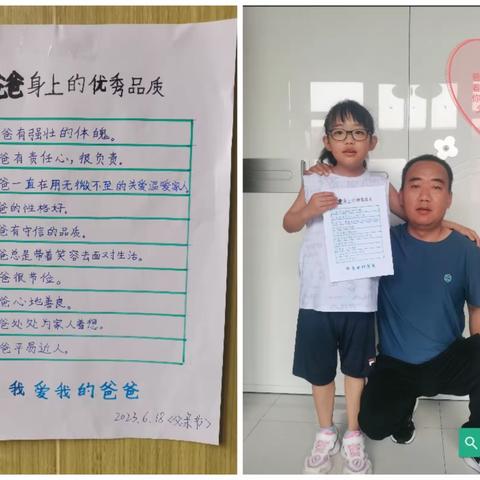 爸身上的优秀品质
爸有强壮的体魄。
爸有责任心,很负责。
爸一直在用无微不至的关爱温暖家人
爸的性格好。
爸有守信的品质。
爸总是带着笑容去面对生活。
爸很节俭。
爸心地善良。
爸处处为家人着想。
爸平易近人。
我爱我的爸爸
2023.6.18《父亲节》